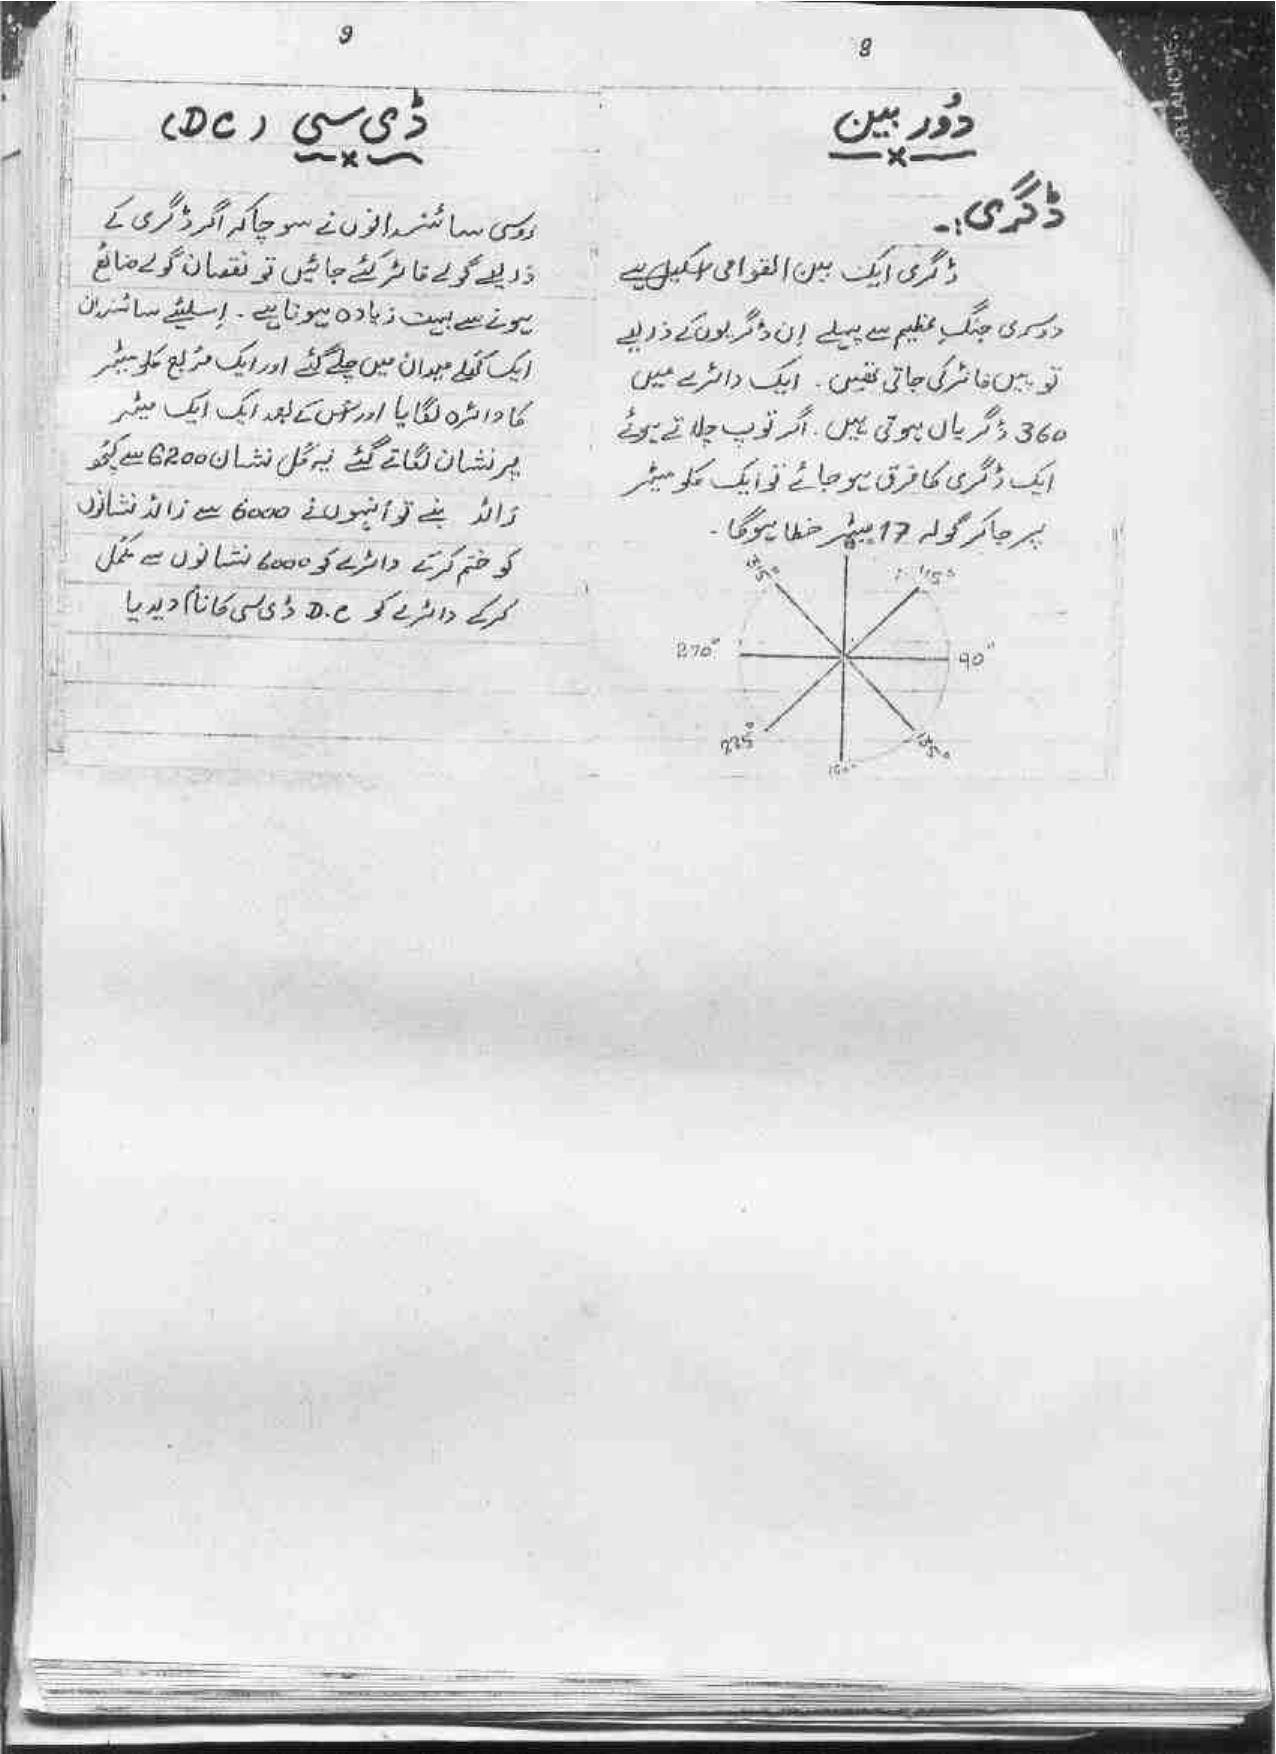 8
دُور بین
ڈگری:-
ڈگری ایک بین القوامی اسکیل ہے
دوسری جنگِ عظیم سے پہلے اِن ڈگریوں کے ذریعے
توپیں فائر کی جاتی تھیں. ایک دائرے میں
360 ڈگریاں ہوتی ہیں. اگر توپ چلاتے ہوئے
ایک ڈگری کا فرق ہو جائے تو ایک کلو میٹر
پر جا کر گولہ 17 میٹر خطا ہوگا.
0
315°
270°
90°
225°
135°
180°
9
ڈی سی (DC)
روسی سائنسدانوں نے سوچا کہ اگر ڈگری کے
ذریعے گولے فائر کئے جائیں تو نقصان گولے ضائع
ہونے سے بہت زیادہ ہوتا ہے. اِسلیئے سائنسدان
ایک کھلے میدان میں چلے گئے اور ایک مُربع کلو میٹر
کا دائرہ لگایا اور اس کے بعد ایک ایک میٹر
پر نشان لگاتے گئے یہ کُل نشان 6200 سے کچھ
زائد بنے تو اُنہوں نے 6000 سے زائد نشانوں
کو ختم کرکے دائرے کو 6000 نشانوں سے مکمل
کرکے دائرے کو D.C ڈی سی کا نام دیدیا